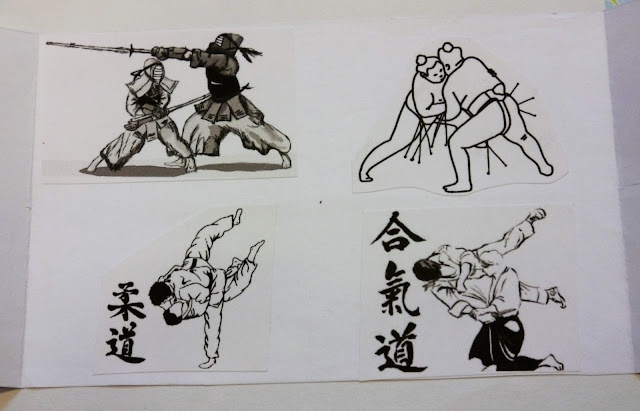 柔道
合氣道